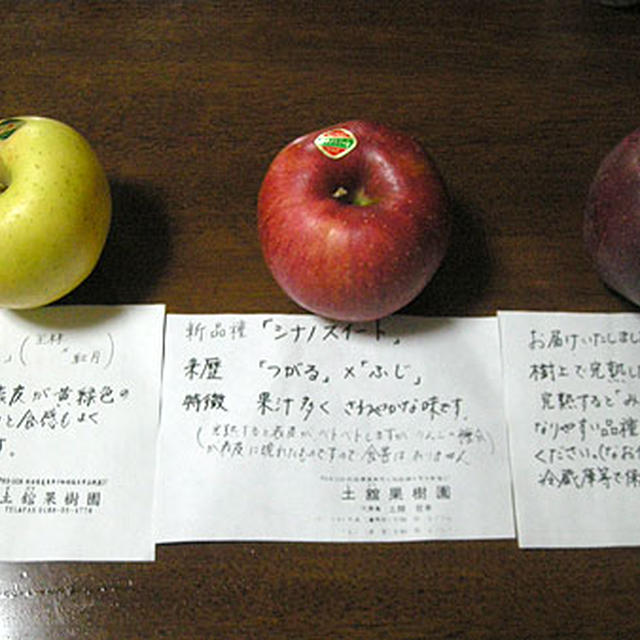 王林
紅月
表皮が黄緑色の
と食感もよく
す。
土舘果樹園
新品種 「シナノスイート」
来歴 「つがる」×「ふじ」
特徴 果汁多く さわやかな味です.
(完熟すると表皮がベトベトしますが りんごの糖分
が表皮に現れたものですので 食害は ありません
土舘果樹園
お届けいたしまし
樹上で完熟し
完熟すると"み
なりやすい品種
ください。(なお
冷蔵庫等で保